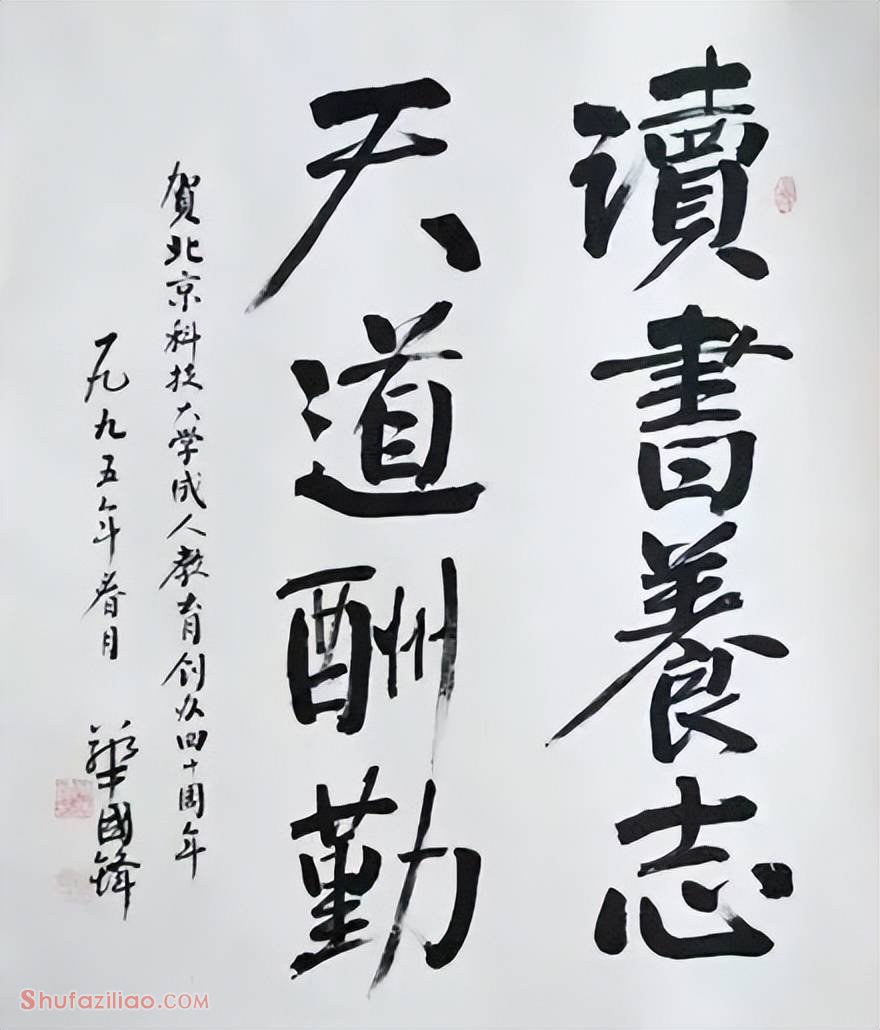 讀書養志
天道酬勤
賀北京科技大学成人教育创办四十周年
一九九五年春月
華國鋒
Shufaziliao.COM